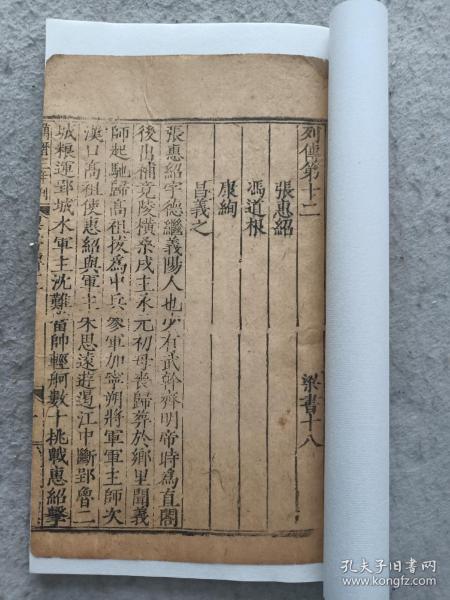 列傳第十二
梁書十八
張惠紹
馮道根
康絢
昌義之
張惠紹字德繼義陽人也少有武幹齊明帝時爲直閤
後出補竟陵橫桑戍主永元初母喪歸葬於鄉里聞義
師起馳歸高祖拔爲中兵參軍加寧朔將軍軍主師次
漢口高祖使惠紹與軍主朱思遠遊遏江中斷郢魯二
城粮運郢城水軍主沈難當帥輕舸數十挑戰惠紹擊
孔夫子旧书网
www.kongfz.com